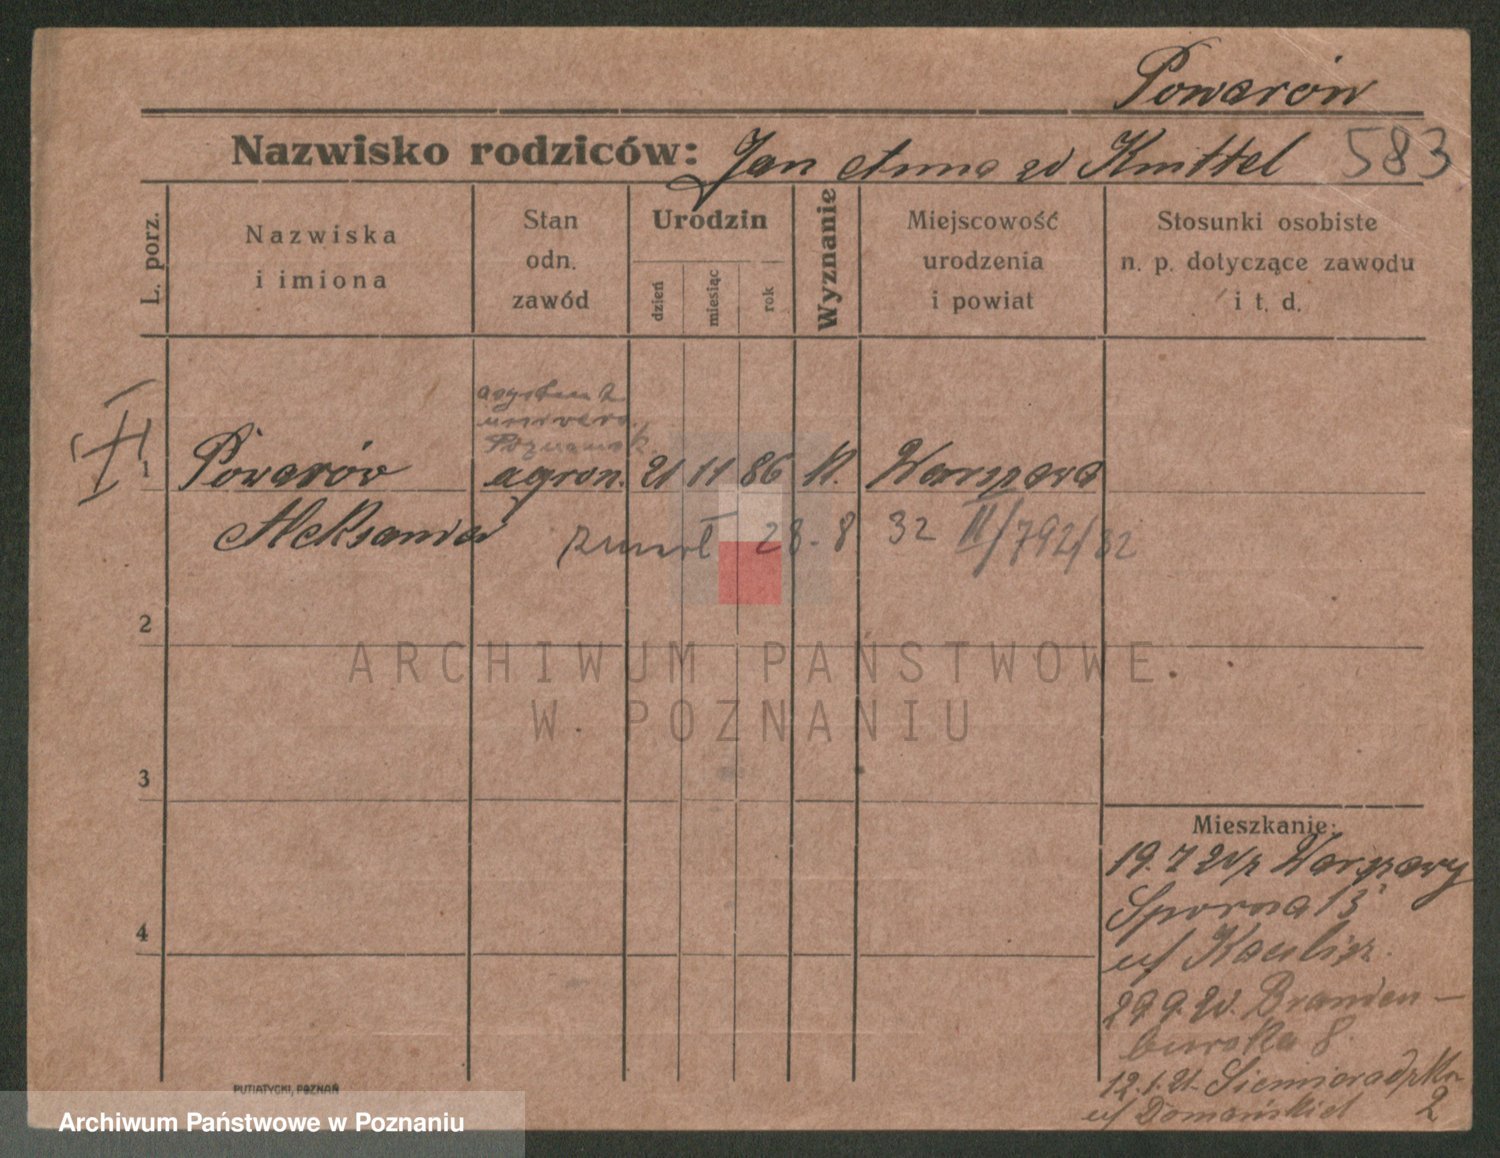 Powarów
Nazwisko rodziców: Jan Anna zd Knittel 583
L. porz.
Nazwiska
i imiona
Stan
odn.
zawód
Urodzin
dzień
miesiąc
rok
Wyznanie
Miejscowość
urodzenia
i powiat
Stosunki osobiste
n. p. dotyczące zawodu
i t. d.
asystent
univers.
Poznańsk.
1 Powarów agron. 21 11 86 Warszawa
Aleksander
zmarł 28. 8 32 II/792/32
2
3
4
Mieszkanie:
19. 7 Warszawy
Sporna 13
u/
29 9. 20. Branden-
burska 8.
12. 1. 21. Siemiradzk
u/ Domańskiel 2
PUTIATYCKI, POZNAŃ
ARCHIWUM PAŃSTWOWE
W POZNANIU
Archiwum Państwowe w Poznaniu